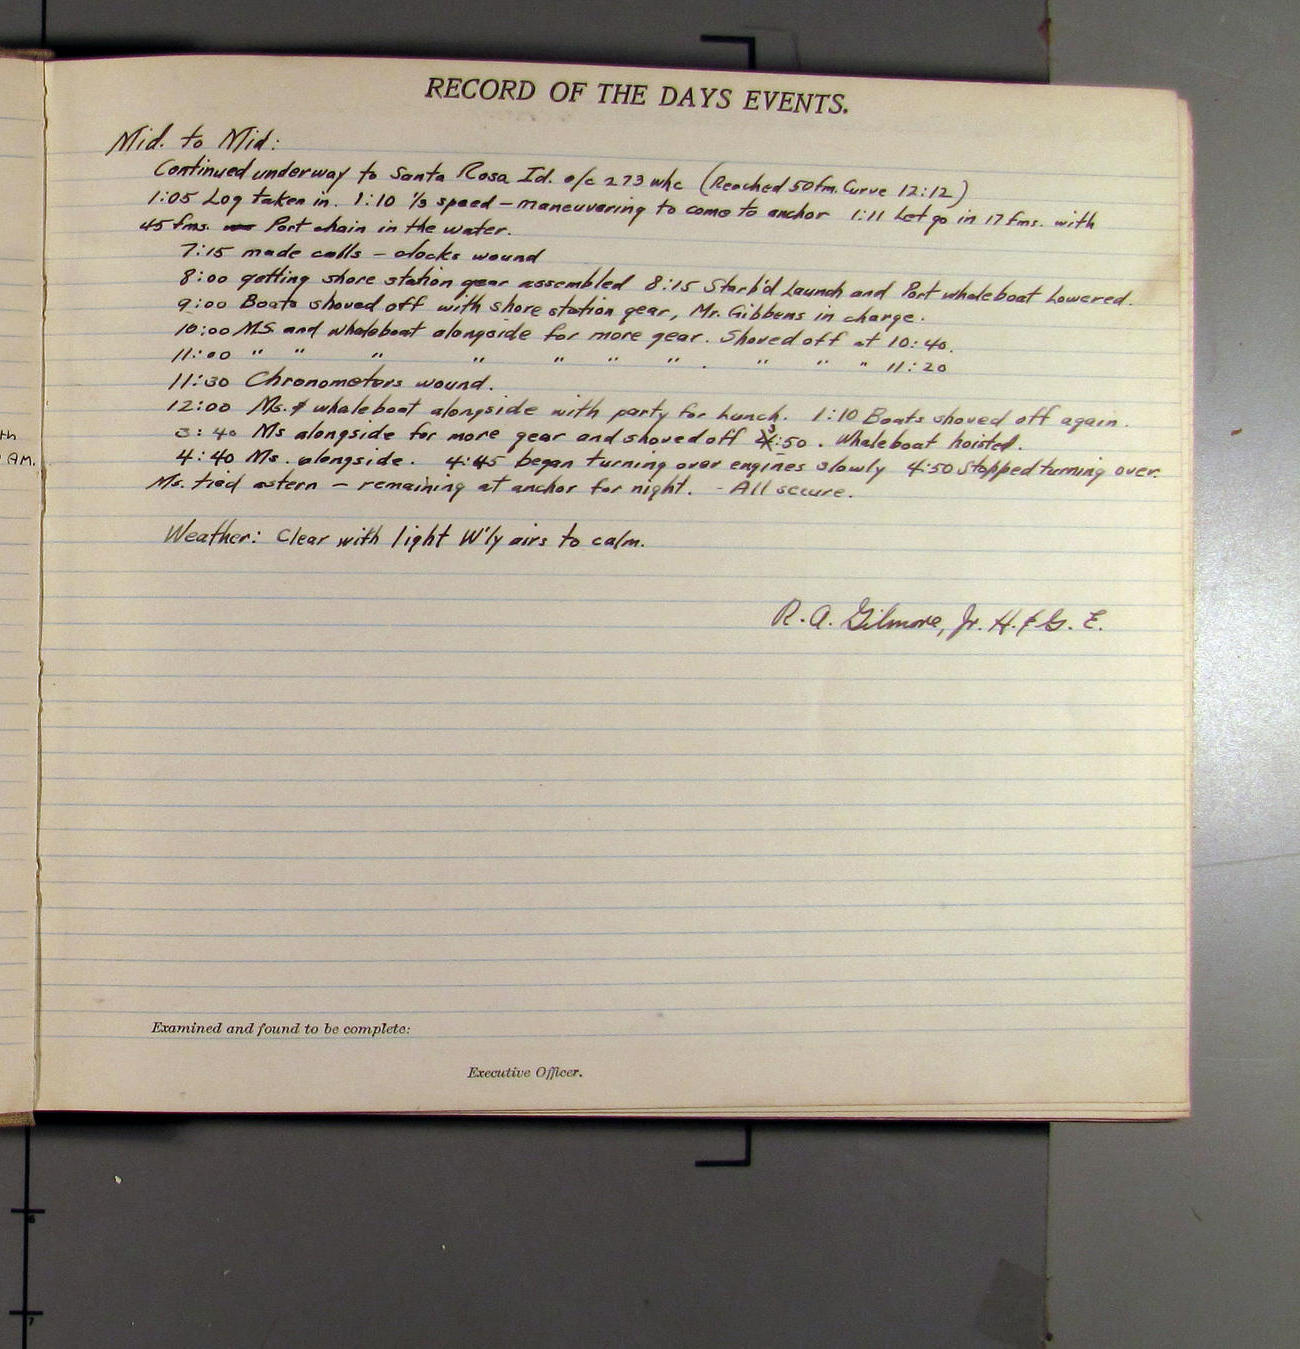 RECORD OF THE DAYS EVENTS.
Mid. to Mid:
Continued underway to Santa Rosa Id. o/c 273 whc (Reached 50 fm. Curve 12:12)
1:05 Log taken in. 1:10 1/3 speed — maneuvering to come to anchor 1:11 Let go in 17 fms. with
45 fms. Port chain in the water.
7:15 made calls — clocks wound
8:00 getting shore station gear assembled 8:15 Starb'd Launch and Port whaleboat Lowered.
9:00 Boats shoved off with shore station gear, Mr. Gibbens in charge.
10:00 M.S. and whaleboat alongside for more gear. Shoved off at 10:40.
11:00 " " " " " " " . " " " 11:20
11:30 Chronometers wound.
12:00 Ms. & whaleboat alongside with party for Lunch. 1:10 Boats shoved off again.
th
3:40 Ms alongside for more gear and shoved off 3:50. Whaleboat hoisted.
AM.
4:40 Ms. alongside. 4:45 began turning over engines slowly 4:50 Stopped turning over.
Ms. tied astern — remaining at anchor for night. - All secure.
Weather: Clear with light W'ly airs to calm.
R. A. Gilmore, Jr. H. & G. E.
Examined and found to be complete:
Executive Officer.
6
7